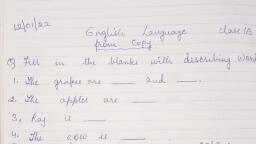 12/01/22
English Language class 1B
from copy.
Q Fill in the blanks with describing word
1. The grapes are ____ and ____.
2. The apples are ____
3. Raj is ____
4. The cow is ____